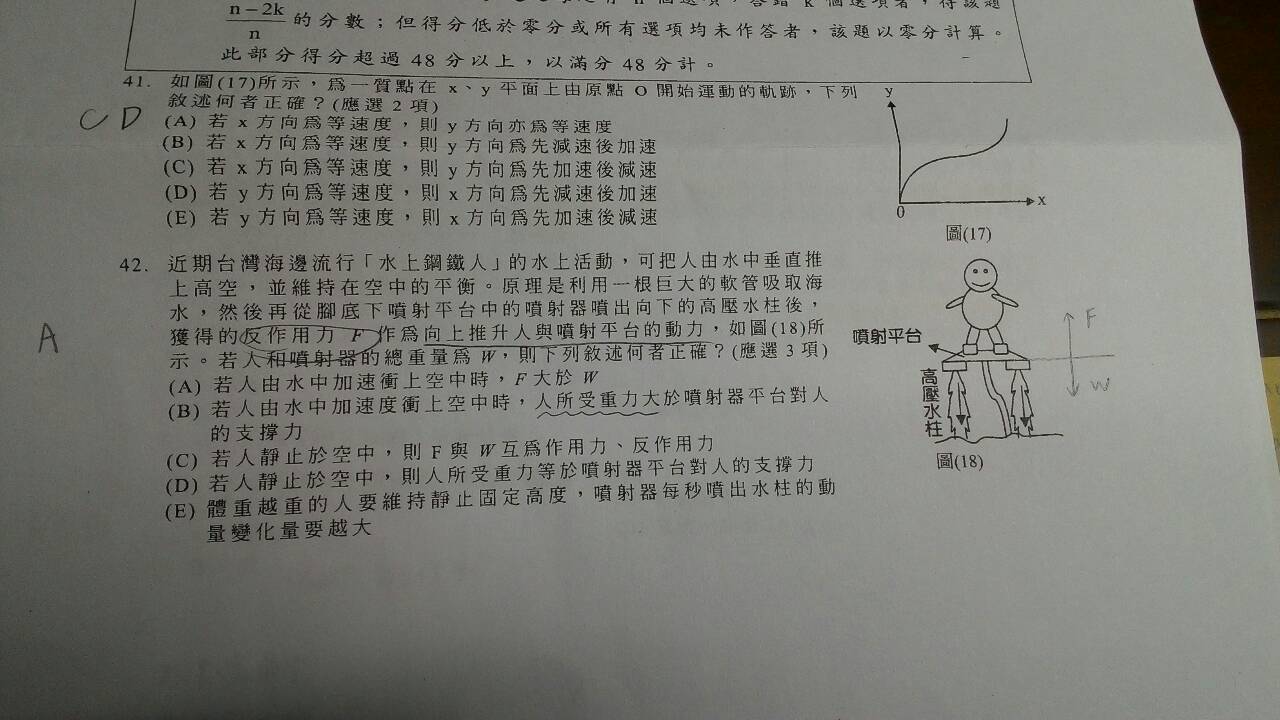 n－2k
n
的分數；但得分低於零分或所有選項均未作答者，該題以零分計算。
此部分得分超過48分以上，以滿分48分計。
CD
41. 如圖(17)所示，為一質點在 x、y 平面上由原點 O 開始運動的軌跡，下列
敘述何者正確？(應選 2 項)
(A) 若 x 方向為等速度，則 y 方向亦為等速度
(B) 若 x 方向為等速度，則 y 方向為先減速後加速
(C) 若 x 方向為等速度，則 y 方向為先加速後減速
(D) 若 y 方向為等速度，則 x 方向為先減速後加速
(E) 若 y 方向為等速度，則 x 方向為先加速後減速
y
x
0
圖(17)
A
42. 近期台灣海邊流行「水上鋼鐵人」的水上活動，可把人由水中垂直推
上高空，並維持在空中的平衡。原理是利用一根巨大的軟管吸取海
水，然後再從腳底下噴射平台中的噴射器噴出向下的高壓水柱後，
獲得的反作用力 F 作為向上推升人與噴射平台的動力，如圖(18)所
示。若人和噴射器的總重量為 W，則下列敘述何者正確？(應選 3 項)
(A) 若人由水中加速衝上空中時，F 大於 W
(B) 若人由水中加速度衝上空中時，人所受重力大於噴射器平台對人
的支撐力
(C) 若人靜止於空中，則 F 與 W 互為作用力、反作用力
(D) 若人靜止於空中，則人所受重力等於噴射器平台對人的支撐力
(E) 體重越重的人要維持靜止固定高度，噴射器每秒噴出水柱的動
量變化量要越大
噴射平台
高壓水柱
F
W
圖(18)